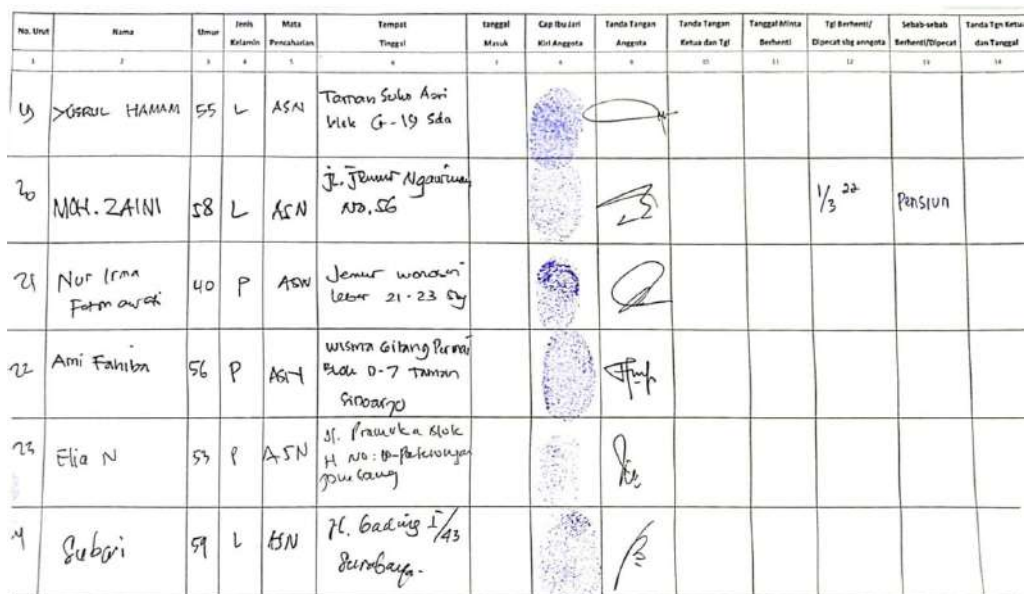 No. Urut Nama Umur Jenis Kelamin Mata Pencaharian Tempat Tinggal tanggal Masuk Cap Ibu Jari Kiri Anggota Tanda Tangan Anggota Tanda Tangan Ketua dan Tgl Tanggal Minta Berhenti Tgl Berhenti/ Dipecat sbg anngota Sebab-sebab Berhenti/Dipecat Tanda Tgn Ketua dan Tanggal
1 2 3 4 5 6 7 8 9 10 11 12 13 14
19 YUSRUL HAMAM 55 L ASN Taman Suko Asri
blok G-19 Sda
20 MOH. ZAINI 58 L ASN jl. Jemur Ngawinan
No. 56
1/3 22 Pensiun
21 Nur Irma
40 P ASN Jemur wonosari
lebar 21-23 Sby
22 Ami Fahiba 56 P ASN wisma Gitang Permai
Blok D-7 Taman
Sidoarjo
23 Elia N 53 P ASN Jl. Pramuka Blok
H No:
Jombang
Subari 59 L ASN Jl. Gading I/43
Surabaya.